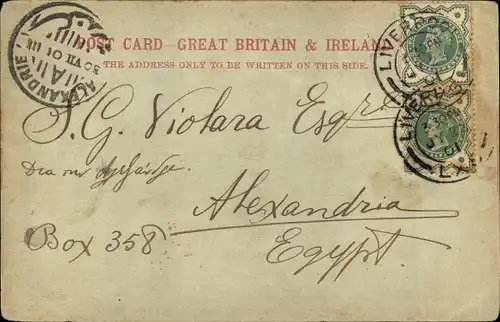 POST CARD—GREAT BRITAIN & IRELAND
THE ADDRESS ONLY TO BE WRITTEN ON THIS SIDE.
ALEXANDRIE
30 VII 01
LIVERPOOL
LIVERPOOL
S. G. Violara Esqre
Alexandria
Box 358
Egypt